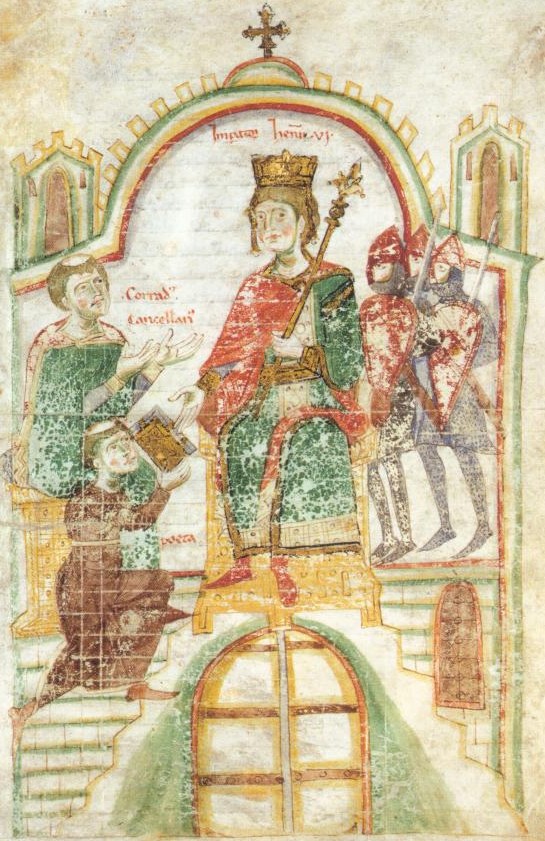 Imp̄ator Henric̄ .VI.
Corrad'
Cancellari'
poeta